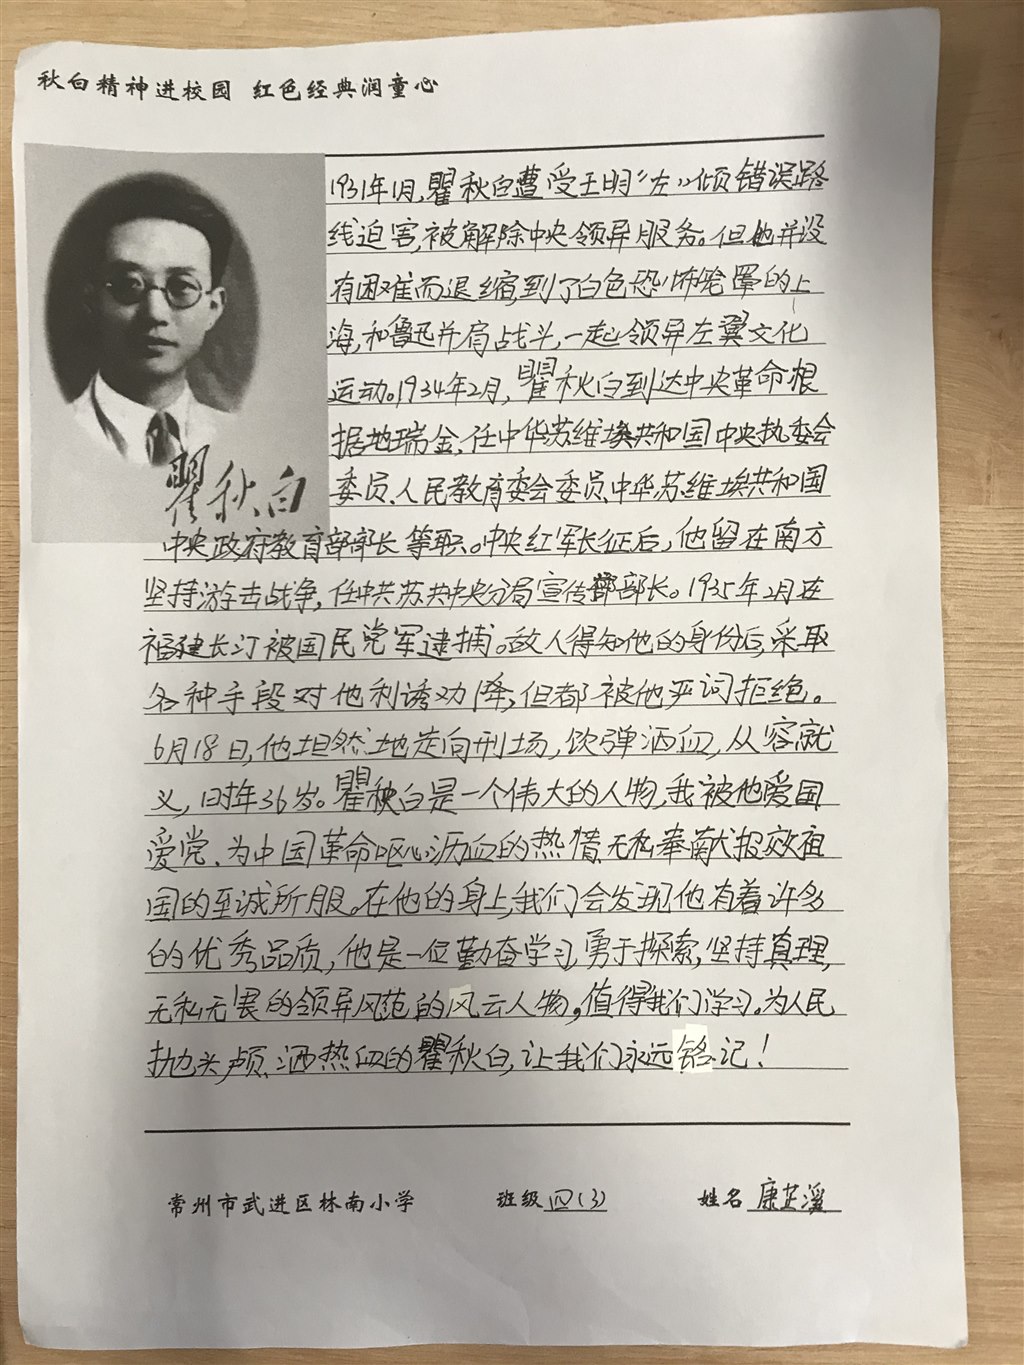 秋白精神进校园 红色经典润童心
1931年1月,瞿秋白遭受王明“左”倾错误路
线迫害,被解除中央领导服务。但他并没
有困难而退缩,到了白色恐怖笼罩的上
海,和鲁迅并肩战斗,一起领导左翼文化
运动。1934年2月,瞿秋白到达中央革命根
据地瑞金,任中华苏维埃共和国中央执委会
委员、人民教育委会委员,中华苏维埃共和国
瞿秋白
中央政府教育部部长等职。中央红军长征后,他留在南方
坚持游击战争,任中共苏共中央分局宣传部部长。1935年2月在
福建长汀被国民党军逮捕。敌人得知他的身份后,采取
各种手段对他利诱劝降,但都被他严词拒绝。
6月18日,他坦然地走向刑场,饮弹洒血,从容就
义,时年36岁。瞿秋白是一个伟大的人物,我被他爱国
爱党、为中国革命呕心沥血的热情,无私奉献报效祖
国的至诚所服。在他的身上,我们会发现他有着许多
的优秀品质,他是一位勤奋学习,勇于探索,坚持真理,
无私无畏的领导风范的风云人物,值得我们学习。为人民
抛头颅、洒热血的瞿秋白,让我们永远铭记!
常州市武进区林南小学 班级四(3) 姓名康芷溪